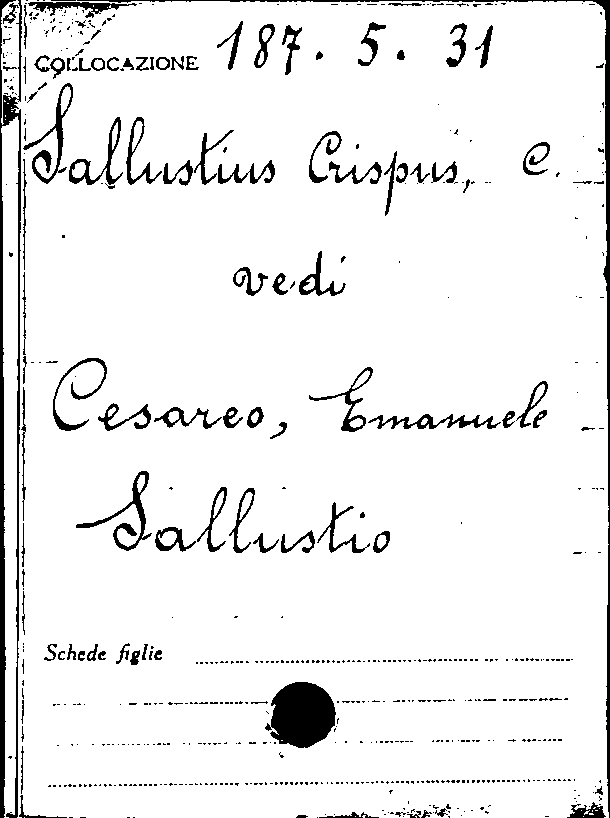 COLLOCAZIONE 187. 5. 31
Sallustius Crispus, C.
vedi
Cesareo, Emanuele
Sallustio
Schede figlie